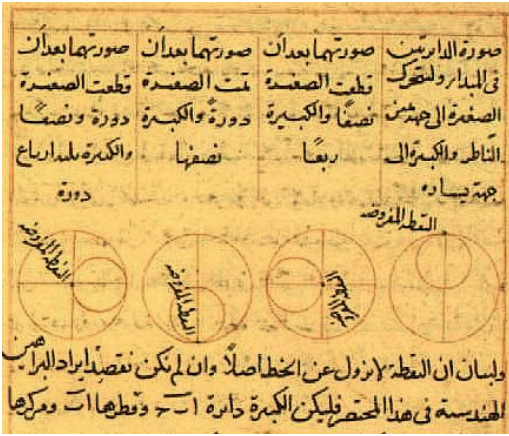 صورة الدايرتين
فى المبدا ولتتحرك
الصغيرة الى جهة يمين
الناظر والكبيرة الى
جهة يساره
صورتهما بعد أن
قطعت الصغيرة
نصفًا والكبيرة
ربعًا
صورتهما بعد أن
تمت الصغيرة
دورة والكبيرة
نصفها
صورتهما بعد أن
قطعت الصغيرة
دورة ونصفًا
والكبيرة ثلثة ارباع
دورة
النقطة المفروضة
النقطة المفروضة
النقطة المفروضة
النقطة المفروضة
ولبيان ان النقطة لا تزول عن الخط اصلًا وان لم نكن نقصد ايراد البراهين
الهندسية فى هذا المختصر فليكن الكبيرة دائرة ا ب ج وقطرها ا ب ومركزها